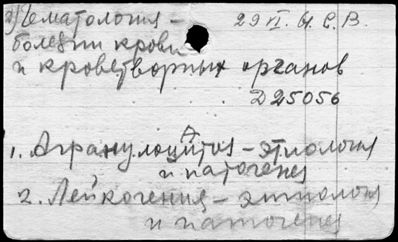 Гематология – 29 VI. И. С. В.
болезни крови
и кроветворных органов
Д 25056
1. Агранулоцитоз – этиология
и патогенез
2. Лейкопения – этиология
и патогенез